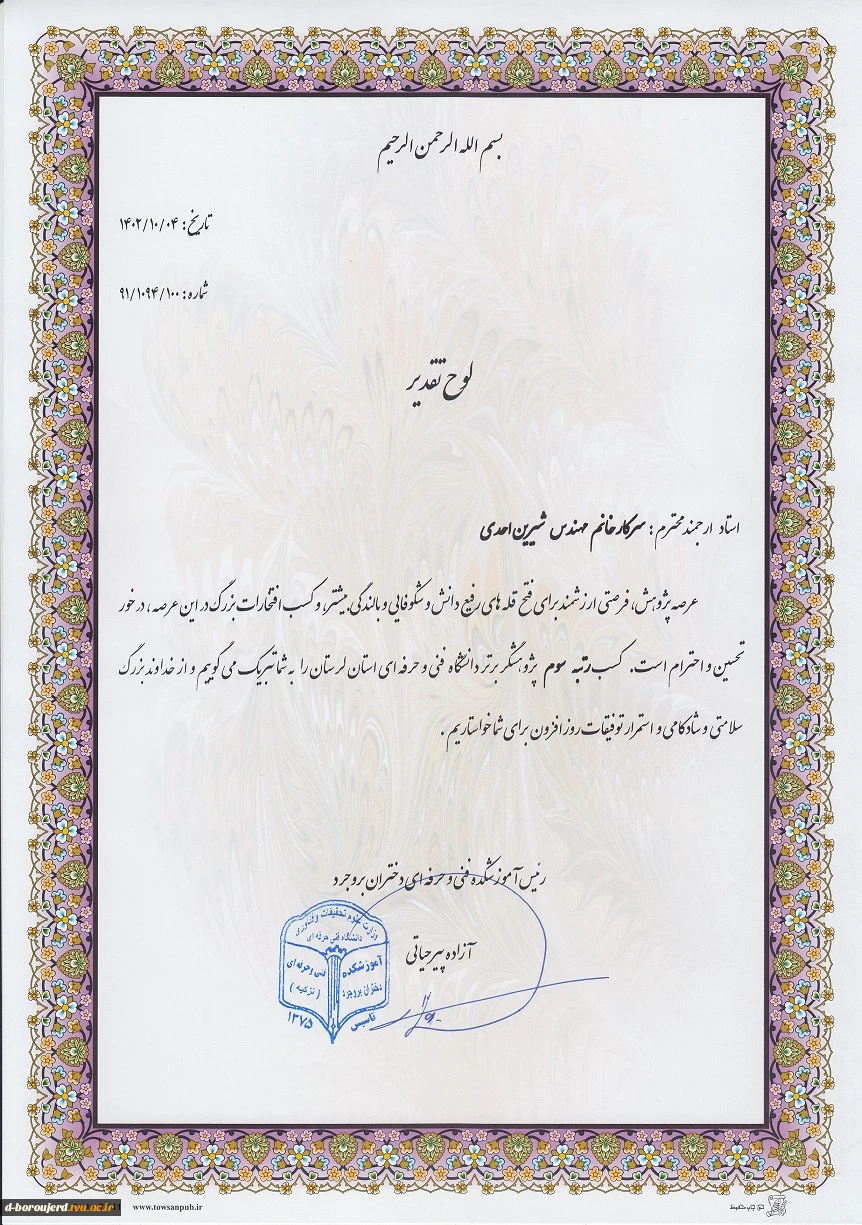 بسم الله الرحمن الرحیم
تاریخ: ۱۴۰۲/۱۰/۰۴
شماره: ۹۱/۱۰۹۴/۱۰۰
لوح تقدیر
استاد ارجمند محترم: سرکار خانم مهندس شیرین احدی
عرصه پژوهش، فرصتی ارزشمند برای فتح قله های رفیع دانش و شکوفایی و بالندگی بیشتر، و کسب افتخارات بزرگ در این عرصه، در خور
تحسین و احترام است. کسب رتبه سوم پژوهشگر برتر دانشگاه فنی و حرفه ای استان لرستان را به شما تبریک می گوییم و از خداوند بزرگ
سلامتی و شادکامی و استمرار توفیقات روز افزون برای شما خواستاریم.
رئیس آموزشکده فنی و حرفه ای دختران بروجرد
آزاده پیرحیاتی
وزارت علوم تحقیقات و فناوری
دانشگاه فنی حرفه ای
آموزشکده فنی و حرفه ای
دختران بروجرد (تزکیه)
تاسیس ۱۳۷۵
d-boroujerd.tvu.ac.ir
www.towsanpub.ir